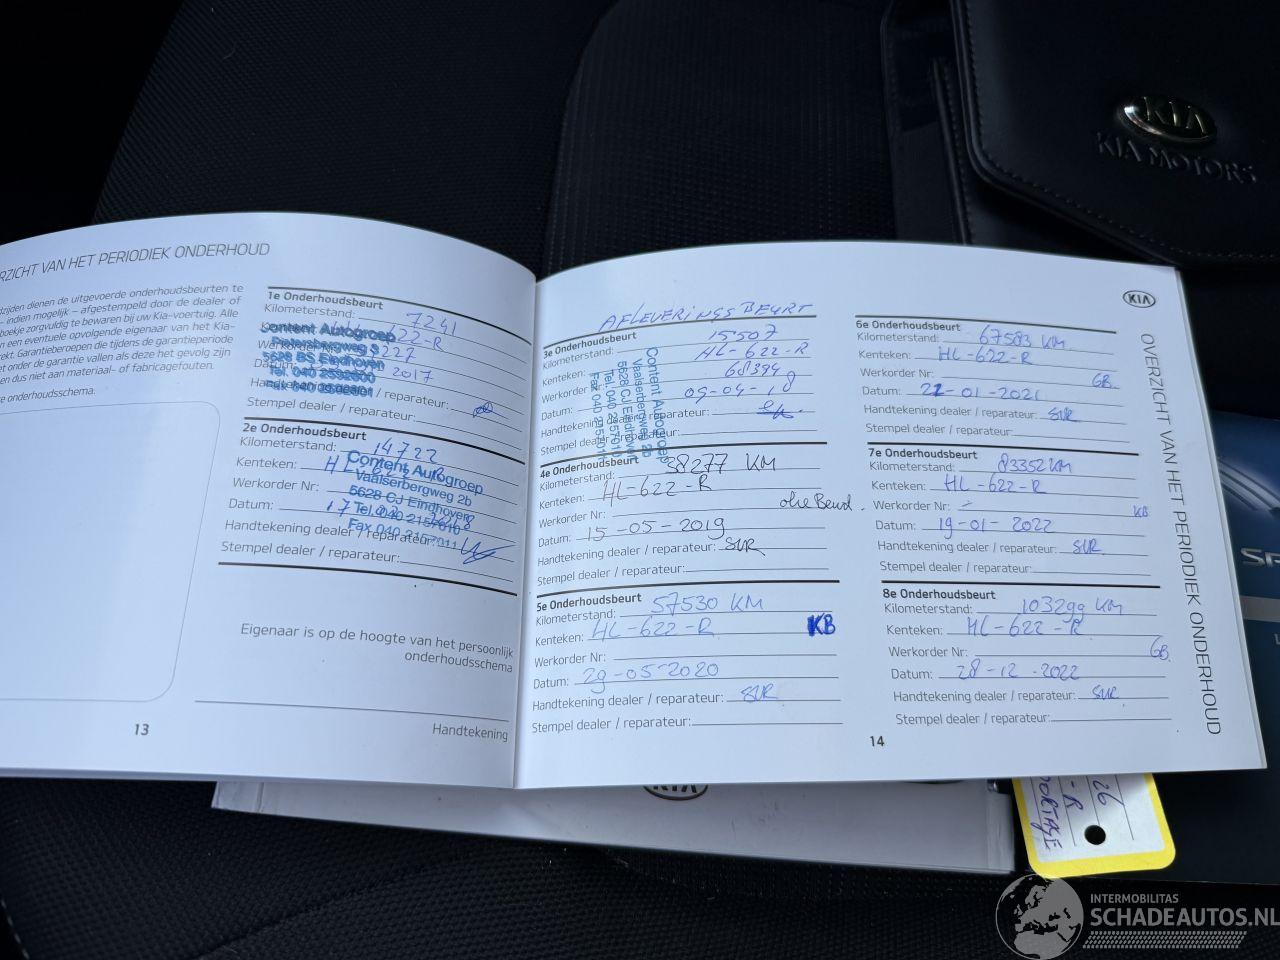 RZICHT VAN HET PERIODIEK ONDERHOUD
dzijden dienen de uitgevoerde onderhoudsbeurten te
– indien mogelijk – afgestempeld door de dealer of
boekje zorgvuldig te bewaren bij uw Kia-voertuig. Alle
n een eventuele opvolgende eigenaar van het Kia-
rekt. Garantieberoepen die tijdens de garantieperiode
et onder de garantie vallen als deze het gevolg zijn
en dus niet aan materiaal- of fabricagefouten.
e onderhoudsschema:
1e Onderhoudsbeurt
Kilometerstand: 7241
622-R
227
Datum: 2017
Handtekening dealer / reparateur:
Stempel dealer / reparateur:
Content Autogroep
5628 BS Eindhoven
2e Onderhoudsbeurt
Kilometerstand: 14722
Kenteken: HL-622-R
Werkorder Nr:
Datum: 17
Handtekening dealer / reparateur:
Stempel dealer / reparateur:
Content Autogroep
Vaalserbergweg 2b
5628 CJ Eindhoven
Tel. 040 2157010
Fax 040 2157011
Eigenaar is op de hoogte van het persoonlijk
onderhoudsschema
Handtekening
13
AFLEVERINGSBEURT
3e Onderhoudsbeurt
Kilometerstand: 15507
Kenteken: HL-622-R
Werkorder 68394
Datum: 09-04-18
Handtekening dealer / reparateur:
Stempel dealer / reparateur:
Content Autogroep
Vaalserbergweg 2b
5628 CJ Eindhoven
Tel. 040 2157010
Fax 040 2157011
4e Onderhoudsbeurt
Kilometerstand: 38277 KM
Kenteken: HL-622-R
Werkorder Nr: olie Beurt.
Datum: 15-05-2019
Handtekening dealer / reparateur: SUR
Stempel dealer / reparateur:
5e Onderhoudsbeurt
Kilometerstand: 57530 KM
Kenteken: HL-622-R KB
Werkorder Nr:
Datum: 29-05-2020
Handtekening dealer / reparateur: SUR
Stempel dealer / reparateur:
KIA
6e Onderhoudsbeurt
Kilometerstand: 67583 KM
Kenteken: HL-622-R
Werkorder Nr: GB.
Datum: 21-01-2021
Handtekening dealer / reparateur: SUR
Stempel dealer / reparateur:
7e Onderhoudsbeurt
Kilometerstand: 83352 KM
Kenteken: HL-622-R
Werkorder Nr: - KB
Datum: 19-01-2022
Handtekening dealer / reparateur: SUR
Stempel dealer / reparateur:
8e Onderhoudsbeurt
Kilometerstand: 103299 KM
Kenteken: HL-622-R
Werkorder Nr: GB.
Datum: 28-12-2022
Handtekening dealer / reparateur: SUR
Stempel dealer / reparateur:
OVERZICHT VAN HET PERIODIEK ONDERHOUD
14
KIA
KIA MOTORS
SP
KIA
26
-R
PORTAGE
INTERMOBILITAS
SCHADEAUTOS.NL